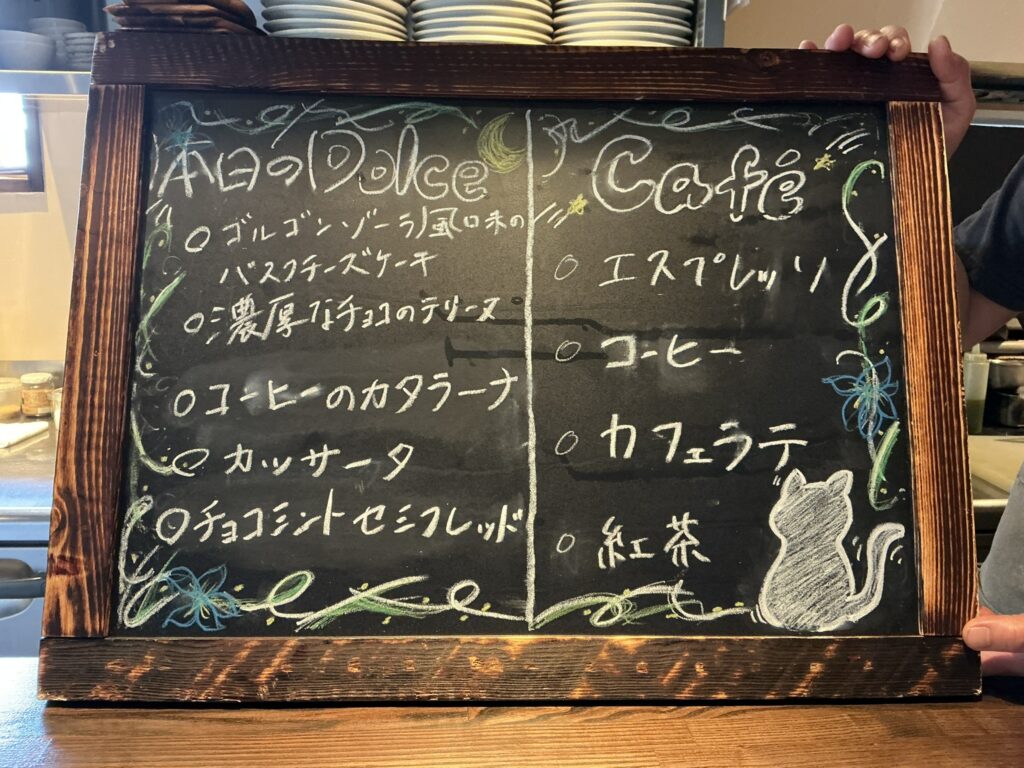 本日のDolce
○ ゴルゴンゾーラ風味の
バスクチーズケーキ
○ 濃厚なチョコのテリーヌ
○ コーヒーのカタラーナ
○ カッサータ
○ チョコミントセミフレッド
Café
○ エスプレッソ
○ コーヒー
○ カフェラテ
○ 紅茶